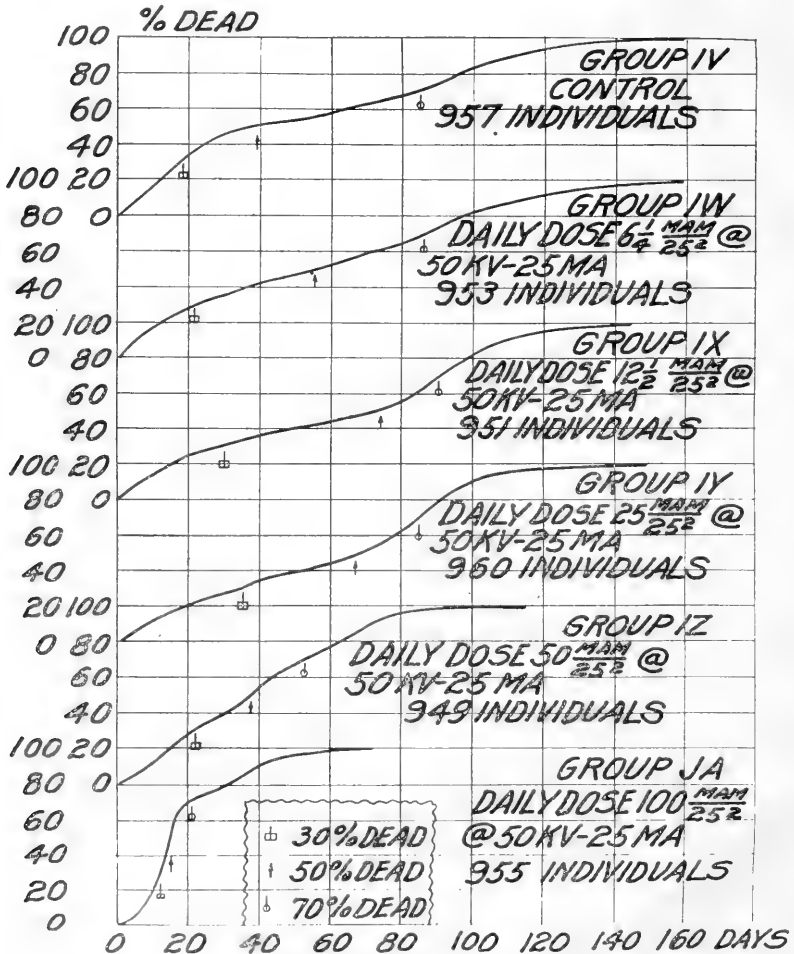 % DEAD
100
80
60
40
100 20
80 0
60
40
20 100
0 80
60
40
100 20
80 0
60
40
20 100
0 80
60
40
100 20
80 0
60
40
20
0
GROUP IV
CONTROL
957 INDIVIDUALS
GROUP IW
DAILY DOSE 6 1/4 MAM/25² @
50 KV-25 MA
953 INDIVIDUALS
GROUP IX
DAILY DOSE 12 1/2 MAM/25² @
50KV-25 MA
951 INDIVIDUALS
GROUP IY
DAILY DOSE 25 MAM/25² @
50KV-25 MA
960 INDIVIDUALS
GROUP IZ
DAILY DOSE 50 MAM/25² @
50 KV-25 MA
949 INDIVIDUALS
GROUP JA
DAILY DOSE 100 MAM/25²
@ 50 KV-25 MA
955 INDIVIDUALS
30% DEAD
50% DEAD
70% DEAD
0 20 40 60 80 100 120 140 160 DAYS